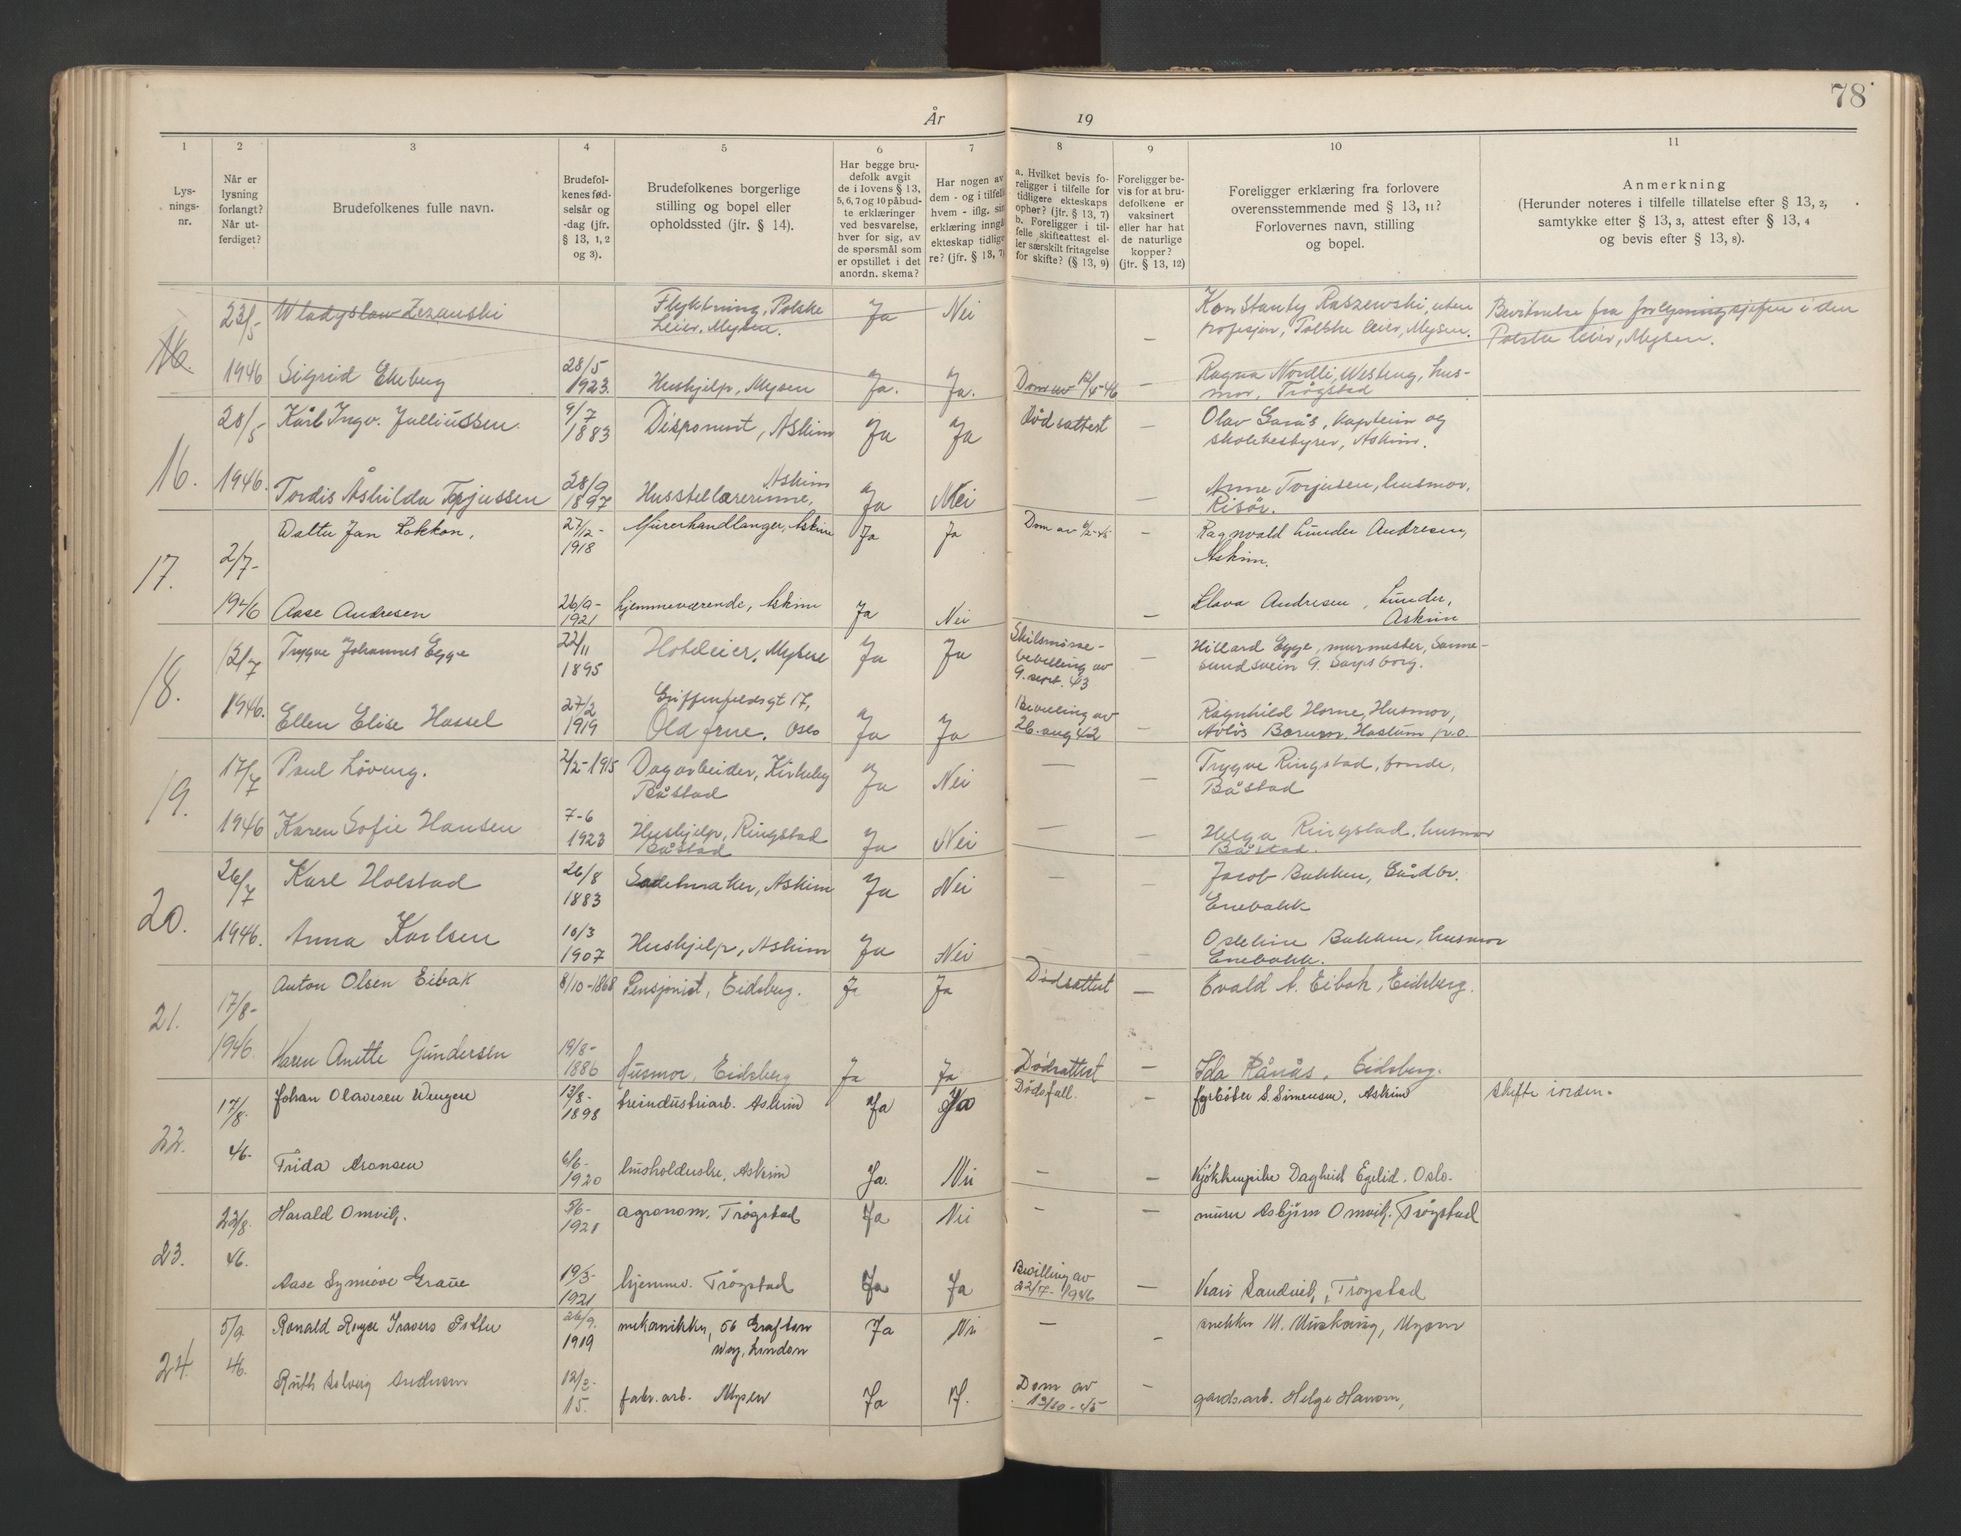 78
År 19
1 2 3 4 5 6 7 8 9 10 11
Lys-
nings-
nr.
Når er
lysning
forlangt?
Når ut-
ferdiget?
Brudefolkenes fulle navn.
Brudefol-
kenes fød-
selsår og
-dag (jfr.
§ 13, 1, 2
og 3).
Brudefolkenes borgerlige
stilling og bopel eller
opholdssted (jfr. § 14).
Har begge bru-
defolk avgit
de i lovens § 13,
5, 6, 7 og 10 påbud-
te erklæringer
ved besvarelse,
hver for sig, av
de spørsmål som
er opstillet i det
anordn. skema?
Har nogen av
dem - og i tilfelle
hvem - iflg. sin
erklæring inngått
ekteskap tidlige-
re? (jfr. § 13, 7)
a. Hvilket bevis fo-
religger i tilfelle for
tidligere ekteskaps
ophør? (jfr. § 13, 7)
b. Foreligger i til-
felle skifteattest el-
ler særskilt fritagelse
for skifte? (§ 13, 9)
Foreligger be-
vis for at bru-
defolkene er
vaksinert
eller har hat
de naturlige
kopper?
(jfr. § 13, 12)
Foreligger erklæring fra forlovere
overensstemmende med § 13, 11?
Forlovernes navn, stilling
og bopel.
Anmerkning
(Herunder noteres i tilfelle tillatelse efter § 13, 2,
samtykke efter § 13, 3, attest efter § 13, 4
og bevis efter § 13, 8).
16. 23/5- Wladyslaw Flyktning, Polske Leier, Mysen. Ja Nei — Konstanty Raszewski, uten profesjon, Polske leier, Mysen. Polske leier, Mysen.
1946 Sigrid Ekeberg 28/5 1923. Hushjelp, Mysen Ja. Ja. Dom av 12/4-46 — Ragna Nordli, husmor, Trøgstad
16. 28/5 Karl Ingv. Julliussen 9/7 1883 Disponent, Askim Ja Ja Dødsattest — Olav kaptein og skolebestyrer, Askim.
1946. Tordis Åshilda Torjussen 28/9 1897 Husstellærerinne, Askim Ja Nei — Anne Torjusen, husmor, Risør.
17. 2/7- Walter Jan Lokkon, 27/12- 1918 Murerhandlanger, Askim Ja Ja Dom av — Ragnvald Lunder Andresen, Askim.
1946 Aase Andresen 26/9- 1921 hjemmeværende, Askim Ja Nei — Andresen, Lunder, Askim
18. 12/7 Trygve Johannes Egge 22/11 1895 Hoteleier, Mysen Ja Ja Skilsmisse-
bevilling av
9. sept. 43 — Hillard Egge, murmester, Sanne-
sundsvein 9. Sarpsborg.
1946. Ellen Elise Hassel 27/2 1919 Griffenfeldsgt 17, Oldfrue, Oslo Ja Ja Bevilling av
26. aug 42 — Ragnhild Horne, Husmor,
Avløs Bærum, Haslum p.o.
19. 17/7 Paul Løveng. 2/2-1915 Dagarbeider, Kirkeby
Båstad Ja Nei — — Trygve Ringstad, bonde,
Båstad
1946 Karen Sofie Hansen 7-6 1923 Hushjelp, Ringstad
Båstad Ja Nei — — Helga Ringstad, husmor
Båstad.
20. 26/7 Karl Holstad 26/8 1883 Sadelmaker, Askim Ja Nei — — Jacob Bakken, Gårdbr.
Enebakk
1946. Anna Karlsen 10/3 1907 Hushjelp, Askim Ja Nei — — Bakken, husmor
Enebakk.
21. 17/8- Anton Olsen Eibak 8/10-1868 Pensjonist, Eidsberg. Ja Ja Dødsattest — Evald A. Eibak, Eidsberg.
1946. Karen Anette Gundersen 19/8- 1886 Husmor, Eidsberg Ja Ja Dødsattest — Ida Rånås, Eidsberg.
22. 17/8. Johan Olavesen Wengen 13/8- 1898 treindustriarb. Askim Ja Ja Dødsfall. fyrbøter S. Simensen, Askim skifte iorden.
46- Frida Aronsen 6/6- 1920 husholderske, Askim Ja. Nei — — Kjøkkenpike Oslo.
23. 23/8. Harald Omvik. 1921 agronom, Trøgstad Ja Nei — — murer Asbjørn Omvik. Trøgstad
46. Aase Synnøve Graue 19/3- 1921 hjemmv. Trøgstad Ja Ja Bevilling av
22/7-1946 — Sandvik, Trøgstad
24. 5/9. Ronald Royce Travers 26/9. 1919 mekaniker, 56 Grafton
Way, London Ja Nei — — snekker M. Mysen
46. Ruth Solveig Andersen 12/2- 15. fabr. arb. Mysen Ja Dom av
12/10-45 — gardsarb. Helge Hansen,